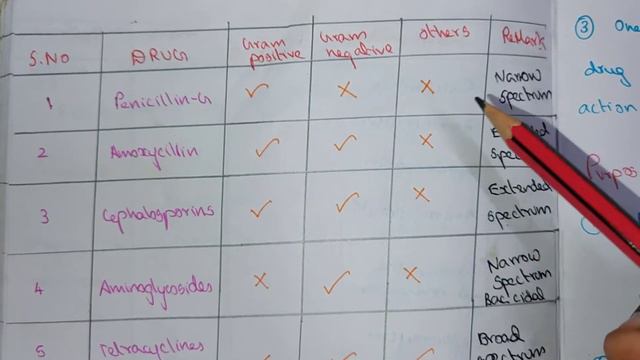 S.NO DRUG Gram positive Gram negative Others Remark
1 Penicillin-G ✓ × × Narrow spectrum
2 Amoxycillin ✓ ✓ ×
3 Cephalosporins ✓ ✓ × Extended spectrum
4 Aminoglycosides × ✓ × Narrow Spectrum Bactcidal
5 Tetracyclines ✓ ✓ ✓ Broad spectrum
③ One
drug
action
Purpos